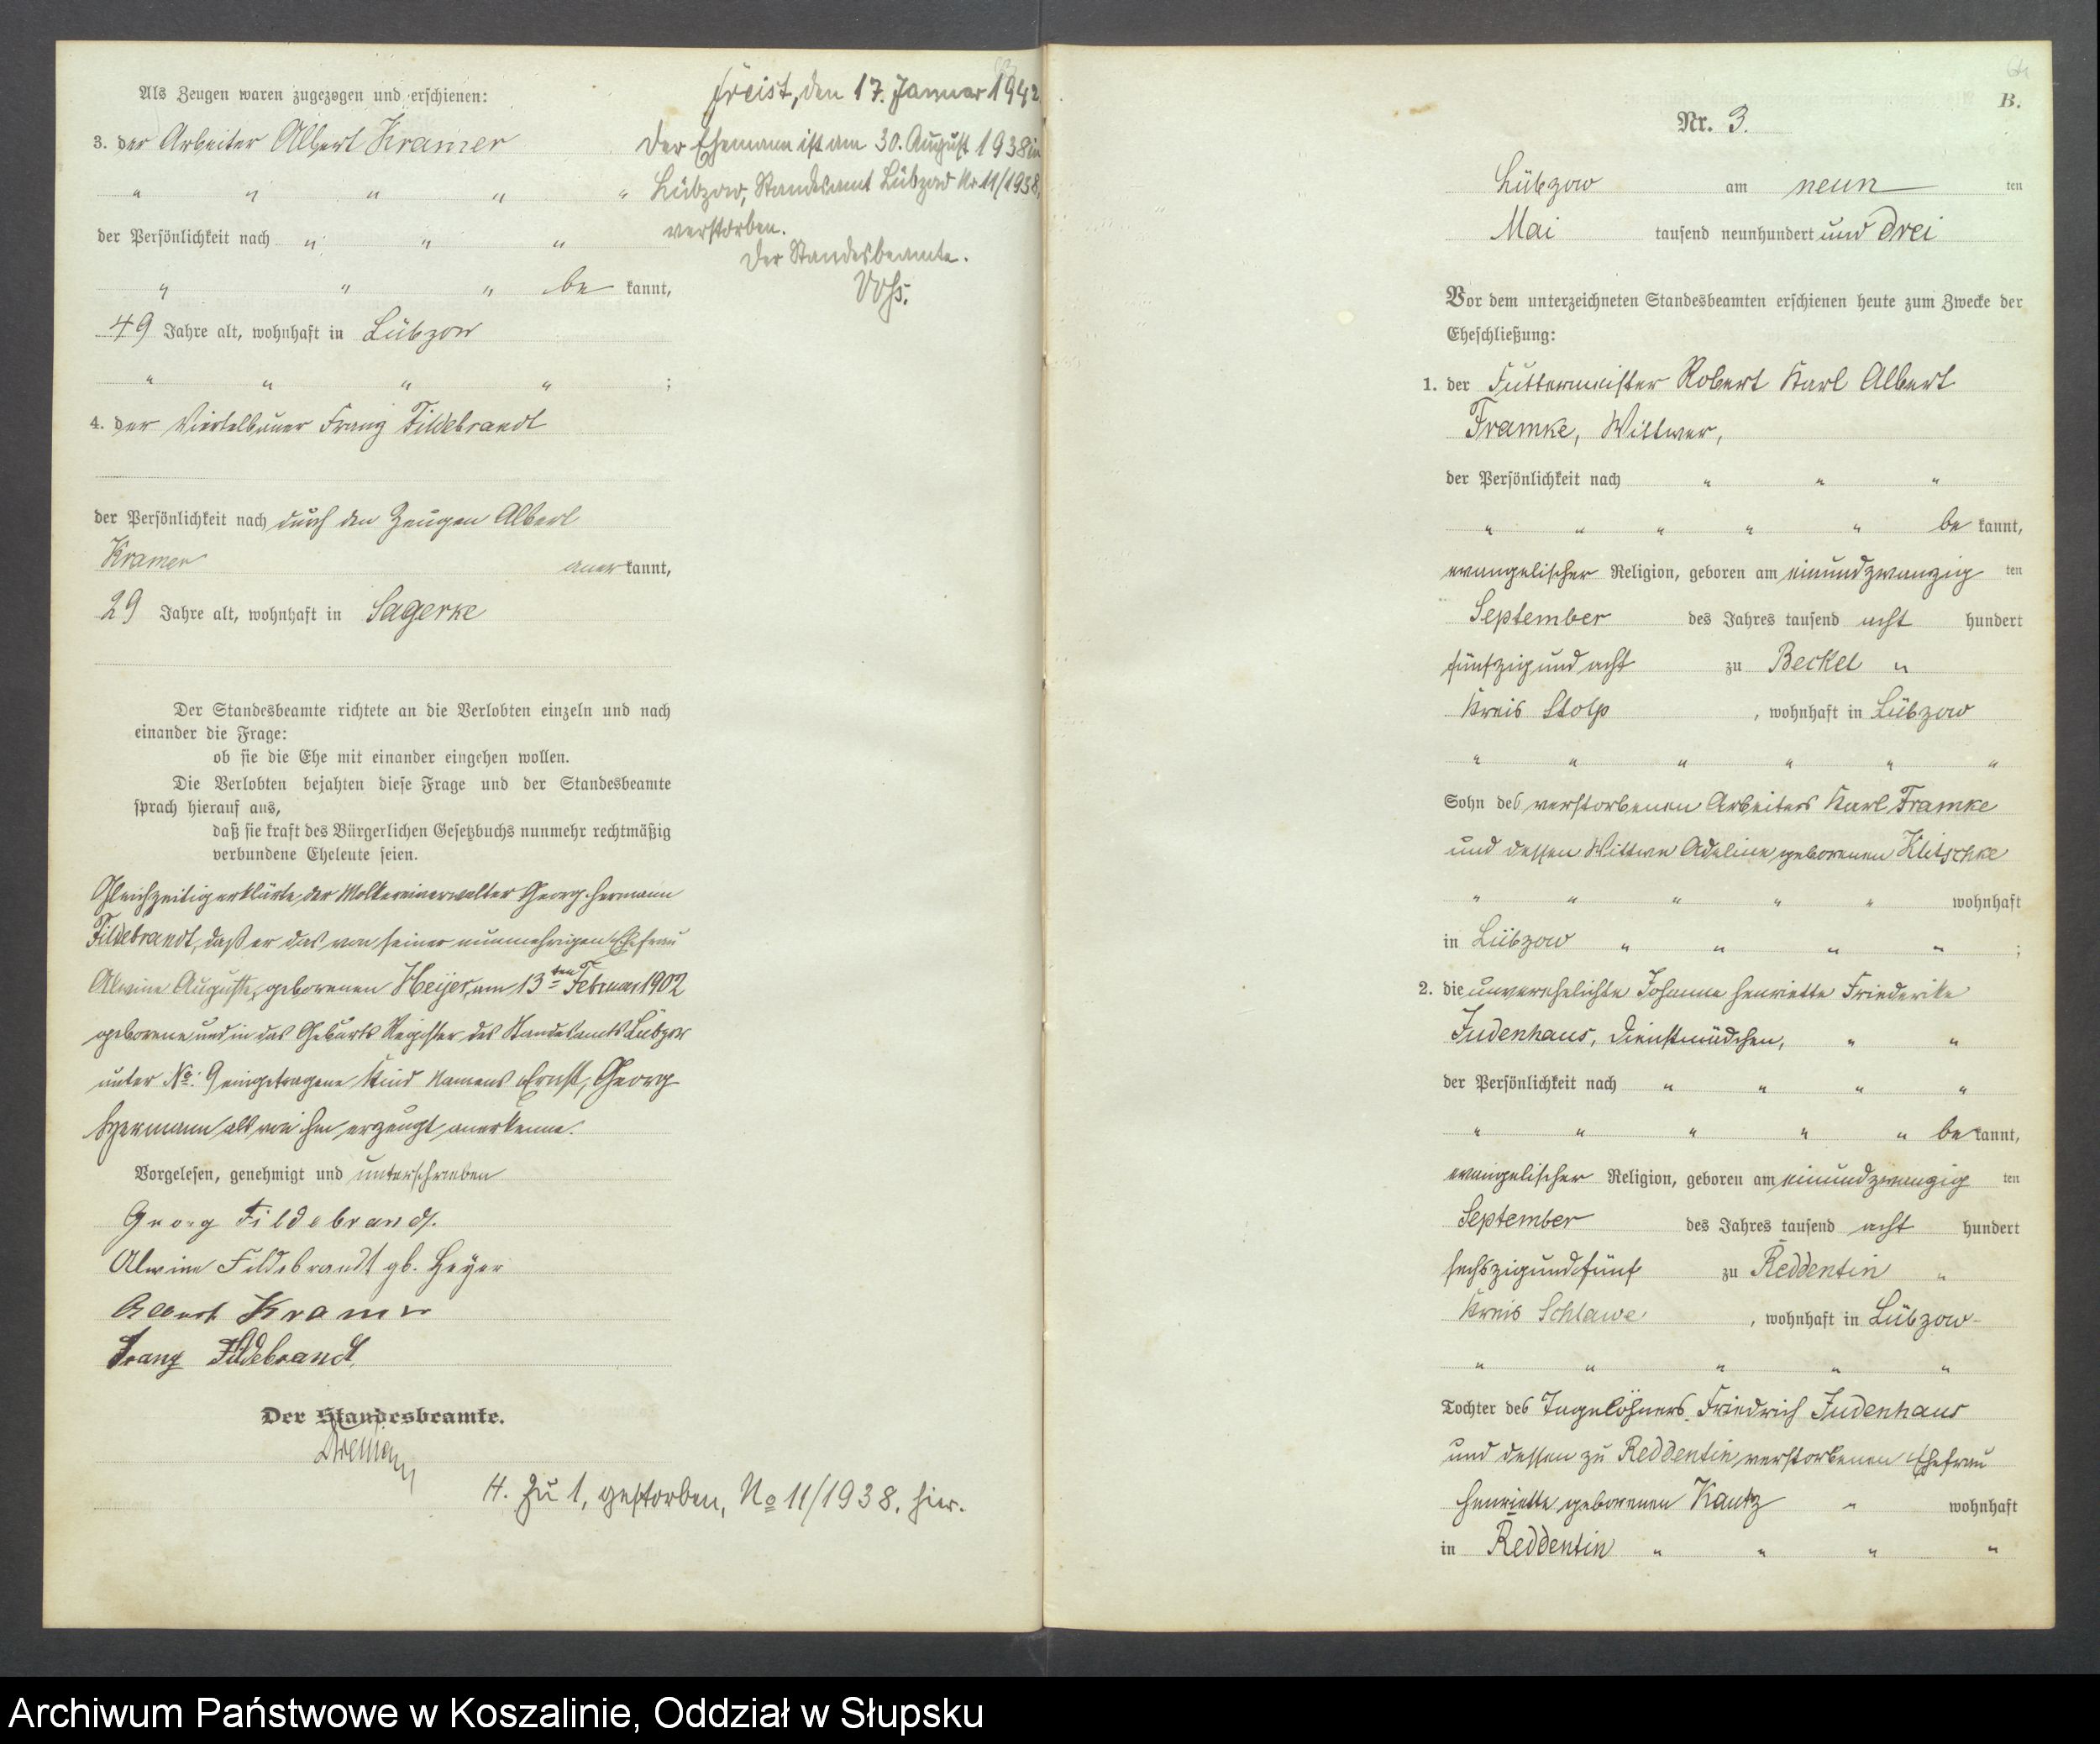 Als Zeugen waren zugezogen und erschienen:
3. der Arbeiter Albert Kramer
" " " " "
der Persönlichkeit nach " " "
" " " be kannt,
49 Jahre alt, wohnhaft in Lübzow
" " " " ;
4. der Viertelbauer Franz Fildebrandt
der Persönlichkeit nach durch den Zeugen Albert
Kramer aner kannt,
29 Jahre alt, wohnhaft in Sagerke
Der Standesbeamte richtete an die Verlobten einzeln und nach
einander die Frage:
ob sie die Ehe mit einander eingehen wollen.
Die Verlobten bejahten diese Frage und der Standesbeamte
sprach hierauf aus,
daß sie kraft des Bürgerlichen Gesetzbuchs nunmehr rechtmäßig
verbundene Eheleute seien.
Gleichzeitig erklärte der Molkereiverwalter Georg Hermann
Fildebrandt, daß er das von seiner nunmehrigen Ehefrau
Alwine Auguste, geborenen Heijer, am 13ten Februar 1902
geborene und in das Geburts Register des Standesamts Lübzow
unter No. 9 eingetragene Kind Namens Ernst, Georg
Hermann als von ihm erzeugt anerkenne.
Vorgelesen, genehmigt und unterschrieben
Georg Fildebrandt.
Alwine Fildebrandt gb. Heyer
Albert Kramer
Franz Fildebrandt.
Der Standesbeamte.
H. Zu 1, gestorben, No 11/1938. hier.
Freist, den 17. Januar 1942
Der Ehemann ist am 30. August 1938 in
Lübzow, Standesamt Lübzow Nr 11/1938,
verstorben.
Der Standesbeamte.
B.
Nr. 3.
Lübzow am neun ten
Mai tausend neunhundert und drei
Vor dem unterzeichneten Standesbeamten erschienen heute zum Zwecke der
Eheschließung:
1. der Futtermeister Robert Karl Albert
Framke, Wittwer,
der Persönlichkeit nach " " "
" " " " " be kannt,
evangelischer Religion, geboren am einundzwanzig ten
September des Jahres tausend acht hundert
fünfzig und acht zu Beckel "
Kreis Stolp , wohnhaft in Lübzow
" " " " " "
Sohn des verstorbenen Arbeiters Karl Framke
und dessen Wittwe Adeline geborenen Klitschke
" " " " " wohnhaft
in Lübzow " " " " ;
2. die unverehelichte Johanne Henriette Friederike
Judenhaus, Dienstmädchen, " "
der Persönlichkeit nach " " " "
" " " " " be kannt,
evangelischer Religion, geboren am einundzwanzig ten
September des Jahres tausend acht hundert
sechszig und fünf zu Reddentin "
Kreis Schlawe , wohnhaft in Lübzow
" " " " "
Tochter des Tagelöhners Friedrich Judenhaus
und dessen zu Reddentin verstorbenen Ehefrau
Henriette geborenen Kautz " wohnhaft
in Reddentin " " " "
Archiwum Państwowe w Koszalinie, Oddział w Słupsku